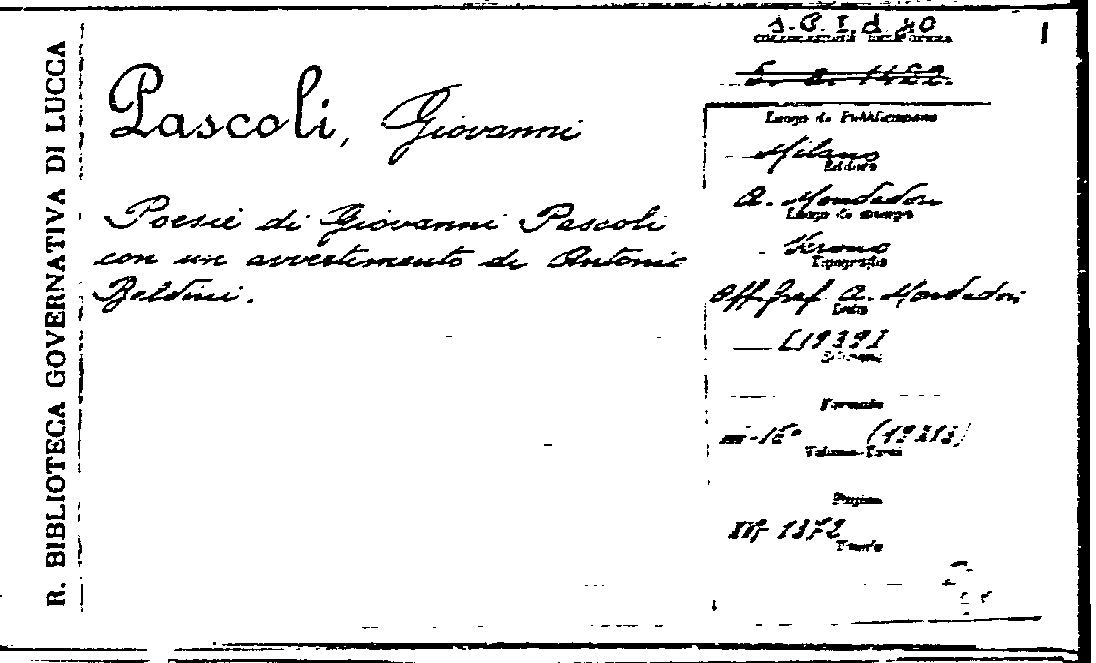 R. BIBLIOTECA GOVERNATIVA DI LUCCA
1
Pascoli, Giovanni
Poesie di Giovanni Pascoli
con un avvertimento di Antonio
Baldini.
Luogo di Pubblicazione
Milano
Editore
A. Mondadori
Luogo di stampa
Verona
Tipografia
Off. Graf. A. Mondadori
Data
[1939]
Edizioni
Formato
in-16°
Volume-Tomi
Pagine
1372
Tavole